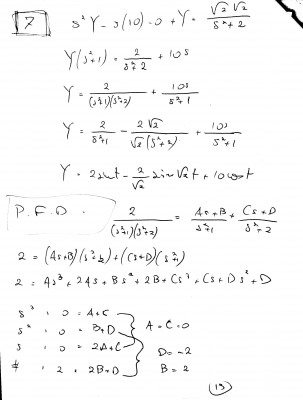 7 s²Y - s(10) - 0 + Y = √2 √2 / s²+2
Y(s²+1) = 2/s²+2 + 10s
Y = 2/(s²+1)(s²+2) + 10s/s²+1
Y = 2/s²+1 - 2√2/√2(s²+2) + 10s/s²+1
Y = 2 sin t - 2/√2 sin √2 t + 10 cos t
P.F.D. 2/(s²+1)(s²+2) = As+B/s²+1 + Cs+D/s²+2
2 = (As+B)(s²+2) + (Cs+D)(s²+1)
2 = As³ + 2As + Bs² + 2B + Cs³ + Cs + Ds² + D
s³ : 0 = A+C
s² : 0 = B+D
A = C = 0
s : 0 = 2A+C
D = -2
# : 2 = 2B+D
B = 2